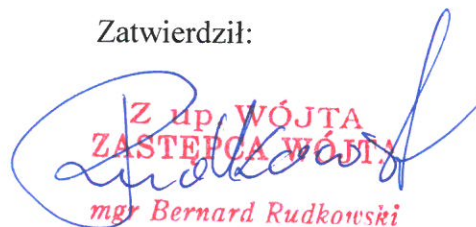 Zatwierdził:
Z up. WÓJTA
ZASTĘPCA WÓJTA
Rudkowski
mgr Bernard Rudkowski